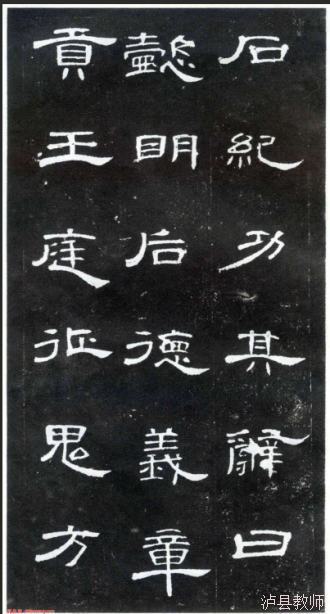 石紀功其辭曰
懿明后德義章
貢王庭征鬼方
泸县教师